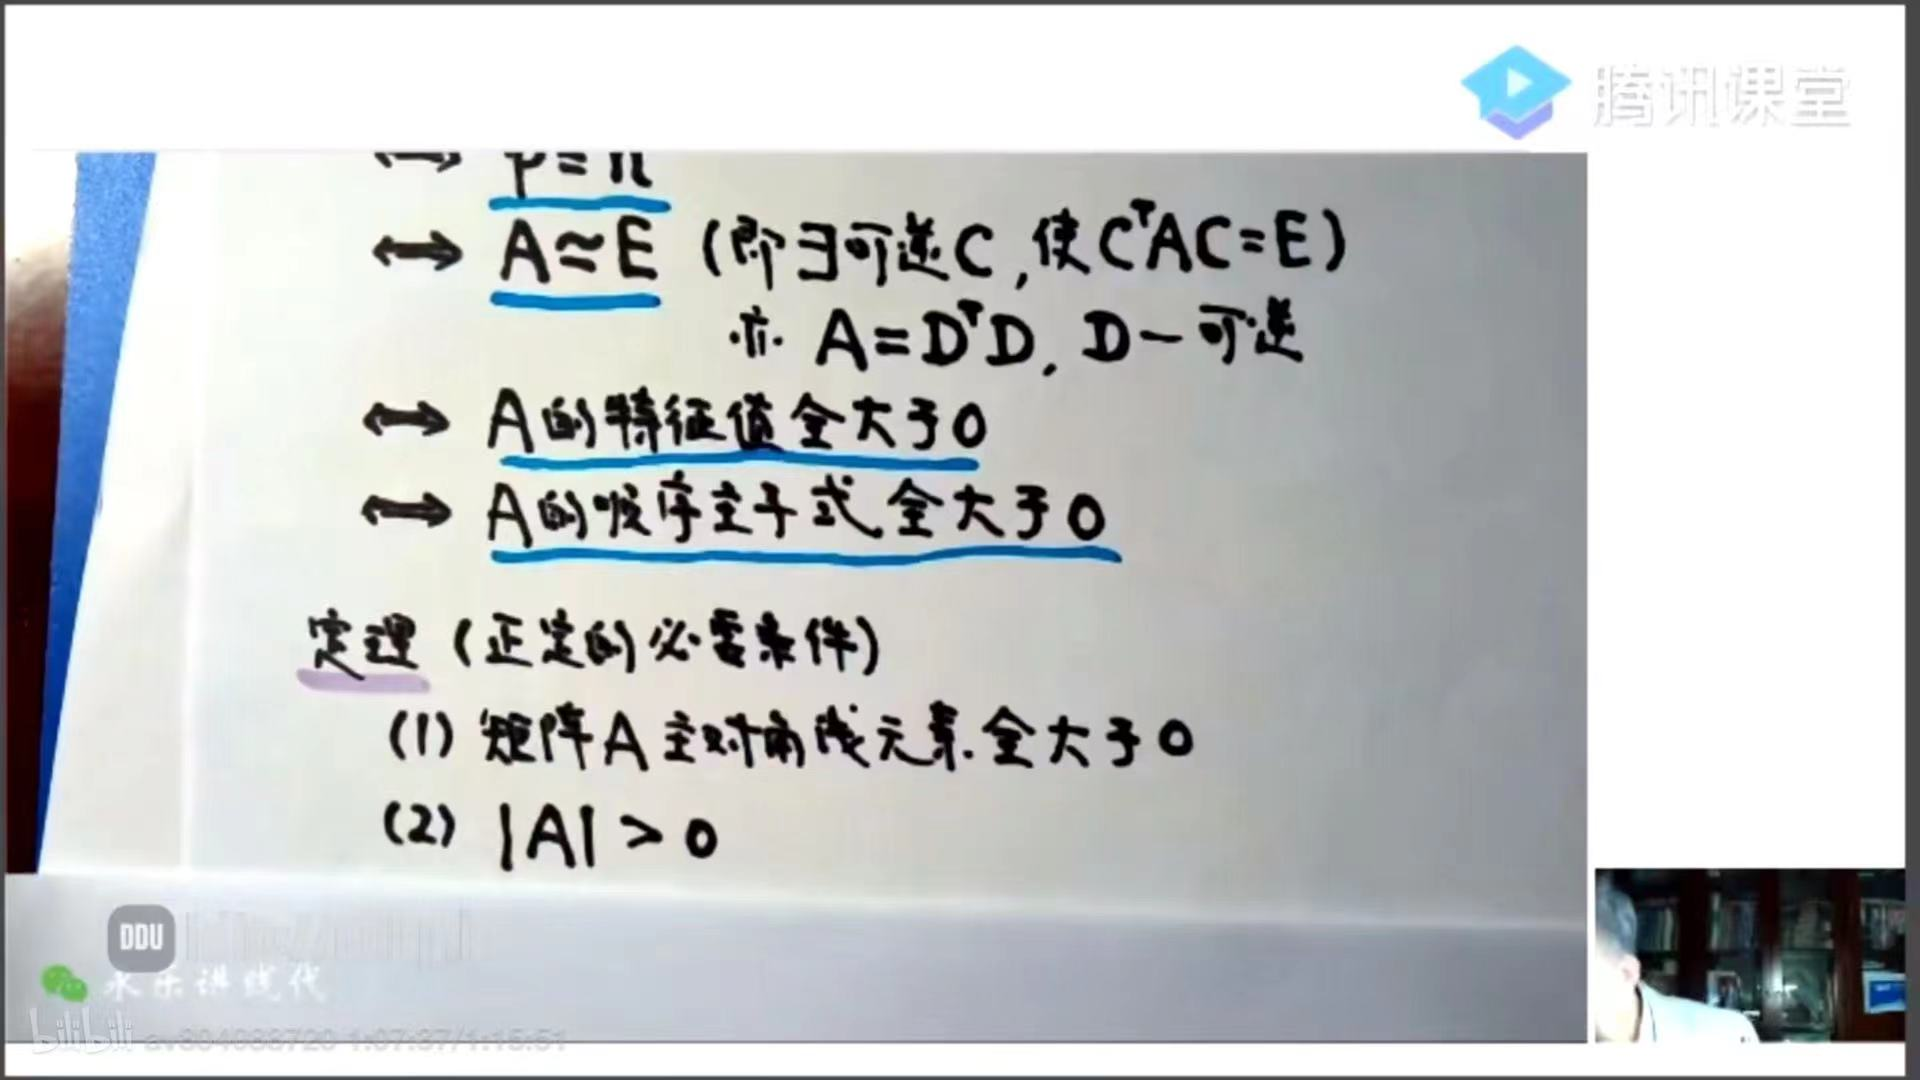 腾讯课堂
⟷ p = n
⟷ A ≃ E (即∃可逆C,使CᵀAC=E)
亦 A=DᵀD, D一可逆
⟷ A的特征值全大于0
⟷ A的顺序主子式全大于0
定理 (正定的必要条件)
(1) 矩阵A主对角线元素全大于0
(2) |A| > 0
DDU
永乐讲线代
bilibili av804088720 1:07:37/1:15:51